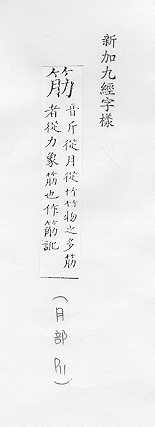 新加九經字樣
筋
音斤從月從竹竹物之多筋
者從力象筋也作筯訛
(月部 P.1)